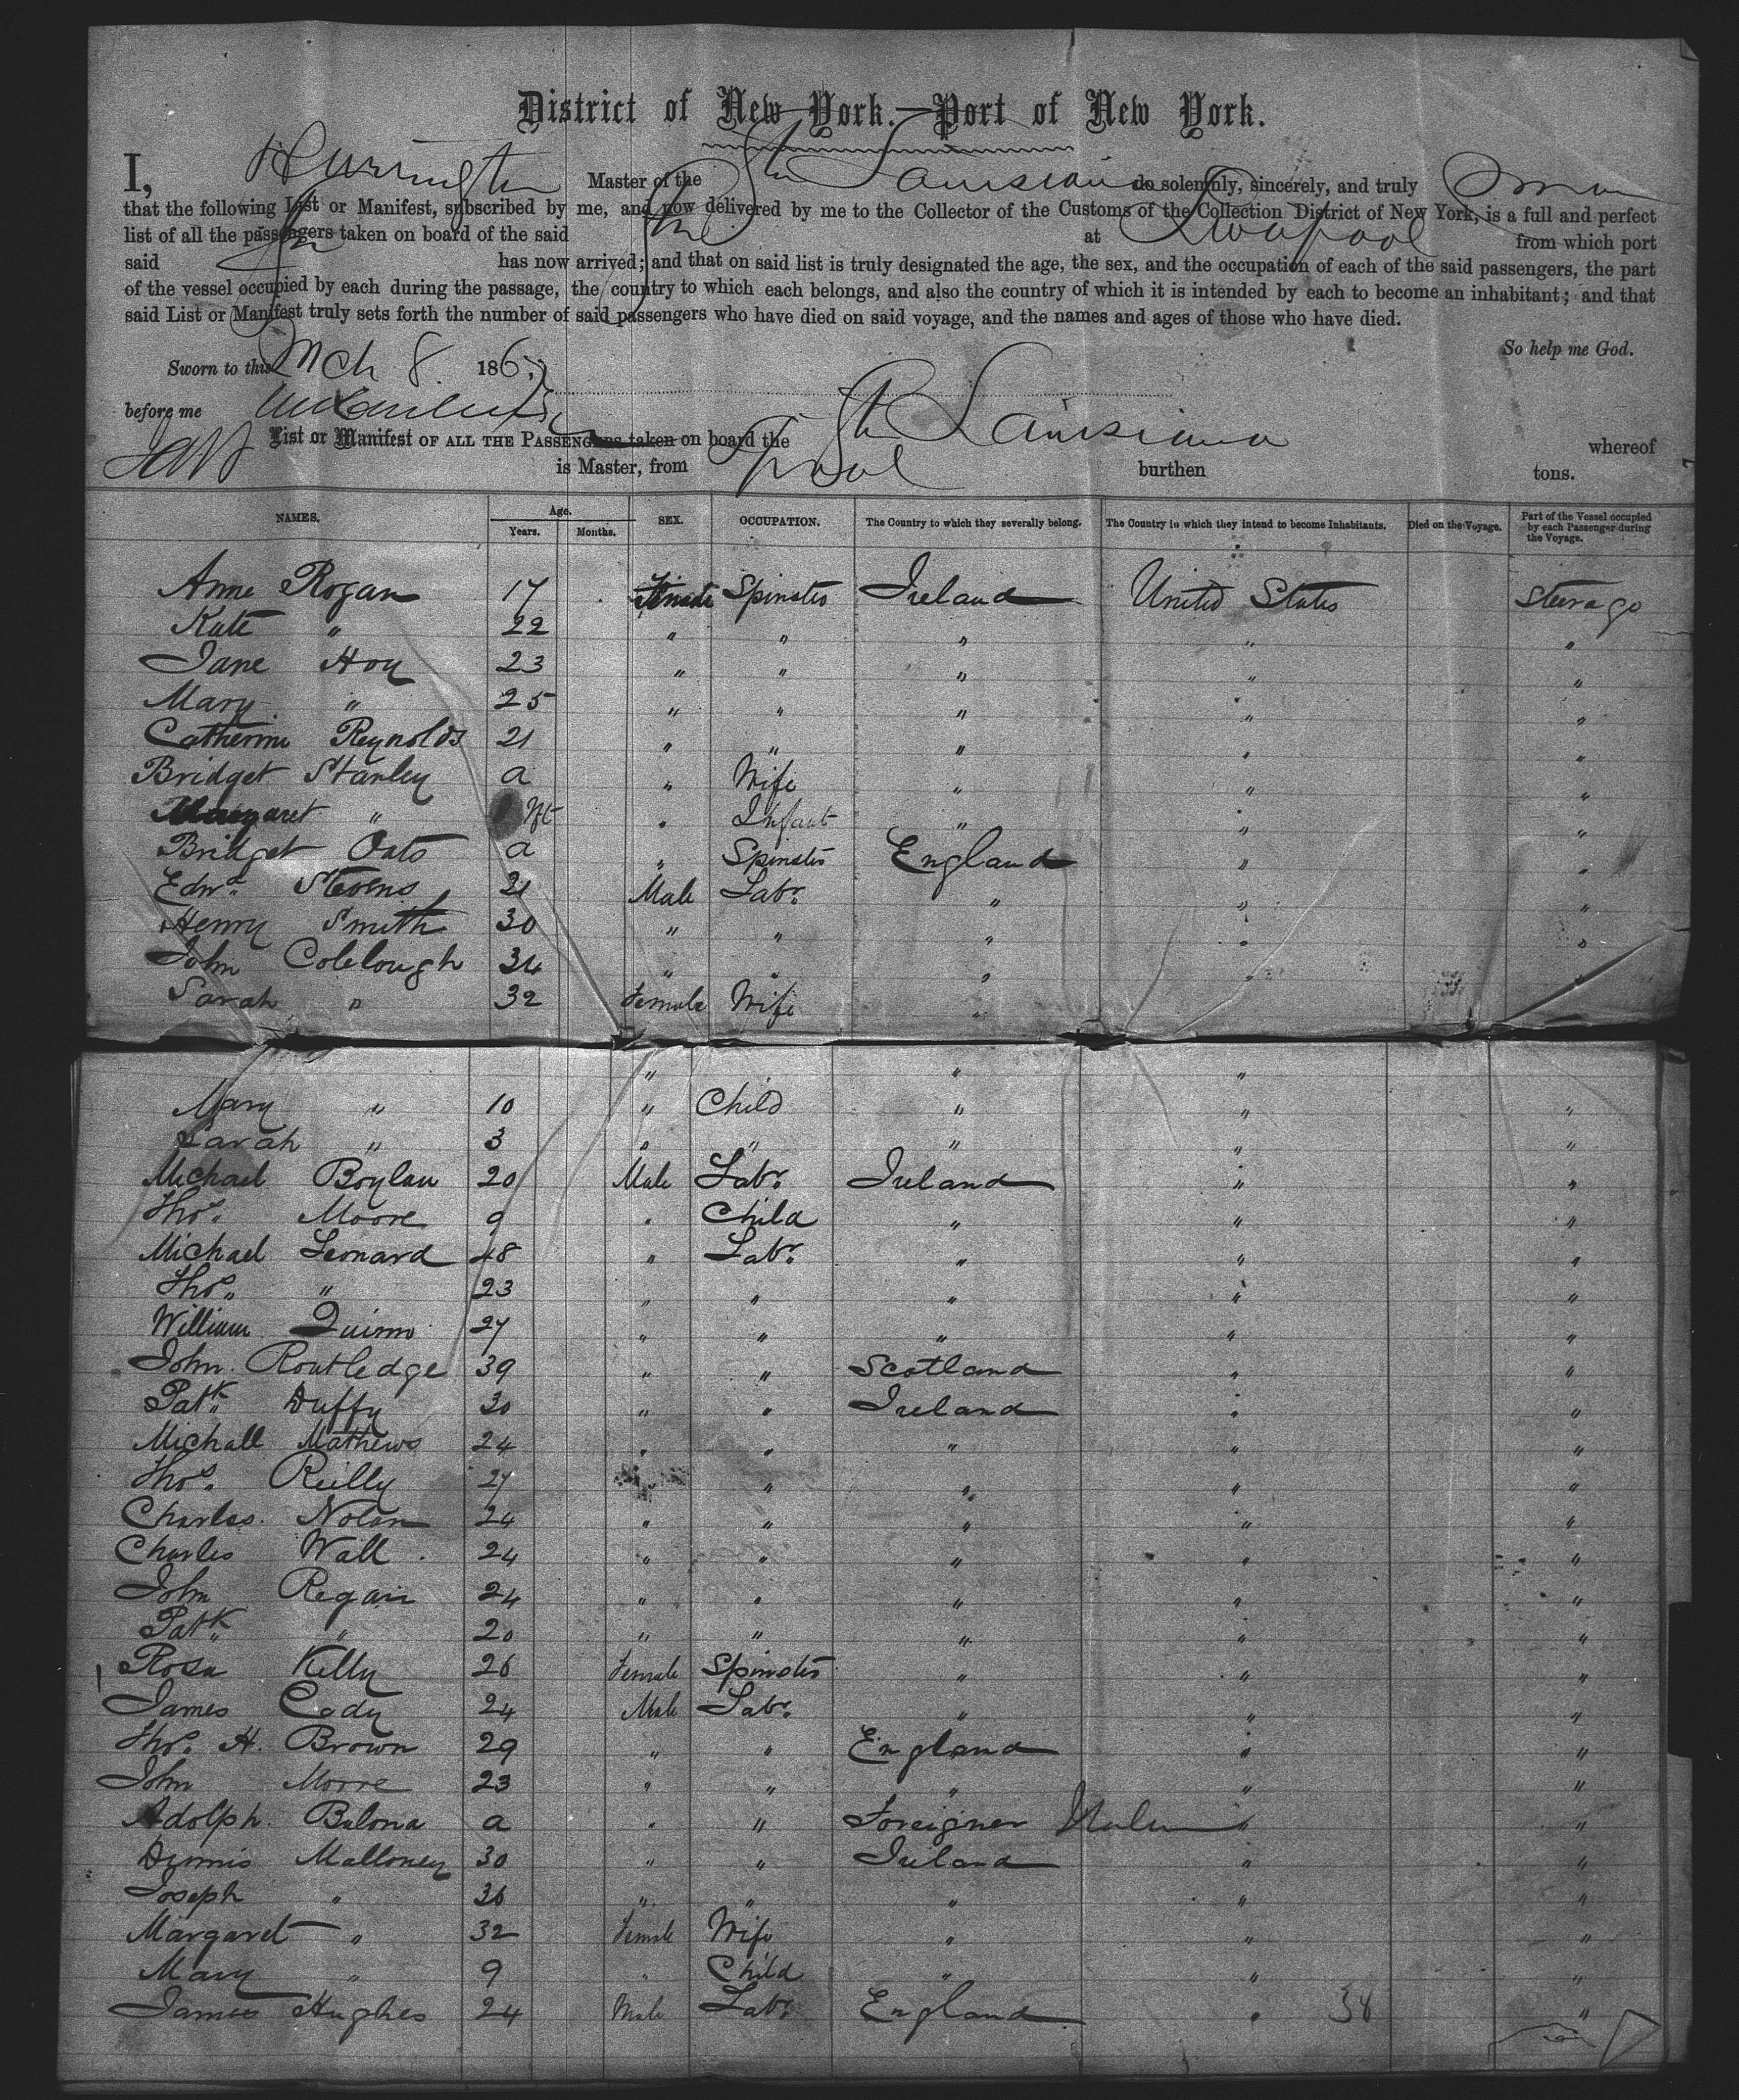 District of New York.—Port of New York.
I, Master of the Str Louisiana do solemnly, sincerely, and truly
that the following List or Manifest, subscribed by me, and now delivered by me to the Collector of the Customs of the Collection District of New York, is a full and perfect
list of all the passengers taken on board of the said at Liverpool from which port
said has now arrived; and that on said list is truly designated the age, the sex, and the occupation of each of the said passengers, the part
of the vessel occupied by each during the passage, the country to which each belongs, and also the country of which it is intended by each to become an inhabitant; and that
said List or Manifest truly sets forth the number of said passengers who have died on said voyage, and the names and ages of those who have died.
So help me God.
Sworn to this Mch 8 186
before me
List or Manifest OF ALL THE PASSENGERS taken on board the Str Louisiana whereof
is Master, from Lpool burthen tons.
NAMES. Age. Years. Months. SEX. OCCUPATION. The Country to which they severally belong. The Country in which they intend to become Inhabitants. Died on the Voyage. Part of the Vessel occupied by each Passenger during the Voyage.
Anne Rogan 17 Female Spinster Ireland United States Steerage
Kate " 22 " " " " "
Jane Hoy 23 " " " " "
Mary " 25 " " " " "
Catherine Reynolds 21 " " " " "
Bridget Stanley a " Wife " " "
Margaret " Inft " Infant " " "
Bridget Oats a " Spinster England " "
Edwd. Stevens 21 Male Labr. " " "
Henry Smith 30 " " " " "
John Colclough 34 " " " " "
Sarah " 32 Female Wife "
" " "
Mary " 10 " Child " " "
Sarah " 3 " " " " "
Michael Boylan 20 Male Labr. Ireland " "
Thos. Moore 9 " Child " " "
Michael Leonard 48 " Labr. " " "
Thos. " 23 " " " " "
William Quinn 27 " " " " "
John Routledge 39 " " Scotland " "
Patk. Duffy 30 " " Ireland " "
Michall Mathews 24 " " " " "
Thos. Reilly 27 " " " "
Charles Nolan 24 " " " " "
Charles Wall 24 " " " " "
John Regan 24 " " " " "
Patk. " 20 " " " " "
Rosa Kelly 26 Female Spinster " " "
James Cody 24 Male Labr. " " "
Thos. H. Brown 29 " " England " "
John Moore 23 " " " " "
Adolph Balona a " " Foreigner " "
Dennis Malloney 30 " " Ireland " "
Joseph " 36 " " " " "
Margaret " 32 Female Wife " " "
Mary " 9 " Child " " "
James Hughes 24 Male Labr. England " 38 "